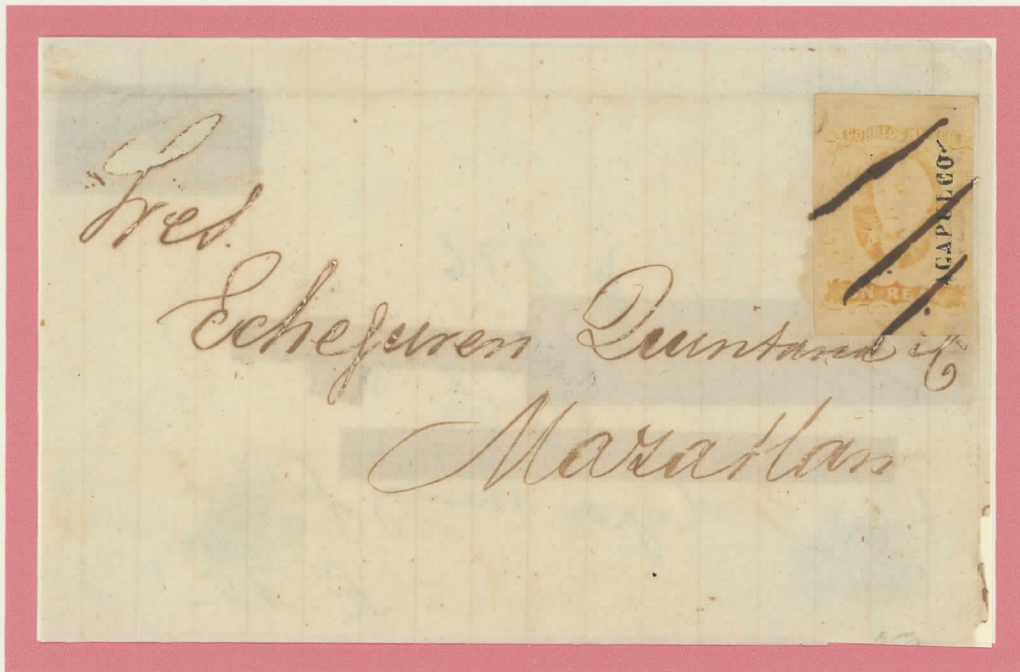 Sres.
Echeguren Quintana y Cª
Mazatlan
CORREOS MEJICO
ACAPULCO
UN REAL